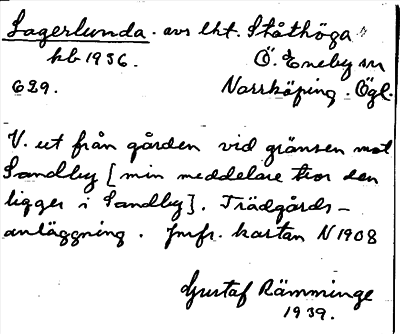 Lagerlunda. avs lht. Ståthöga
hb 1936. Ö. Eneby sn
629. Norrköping. Ögl.
V. ut från gården vid gränsen mot
Sandby [min meddelare tror den
ligger i Sandby]. Trädgårds-
anläggning. Jmfr. kartan N 1908
Gustaf Rämminge
1939.